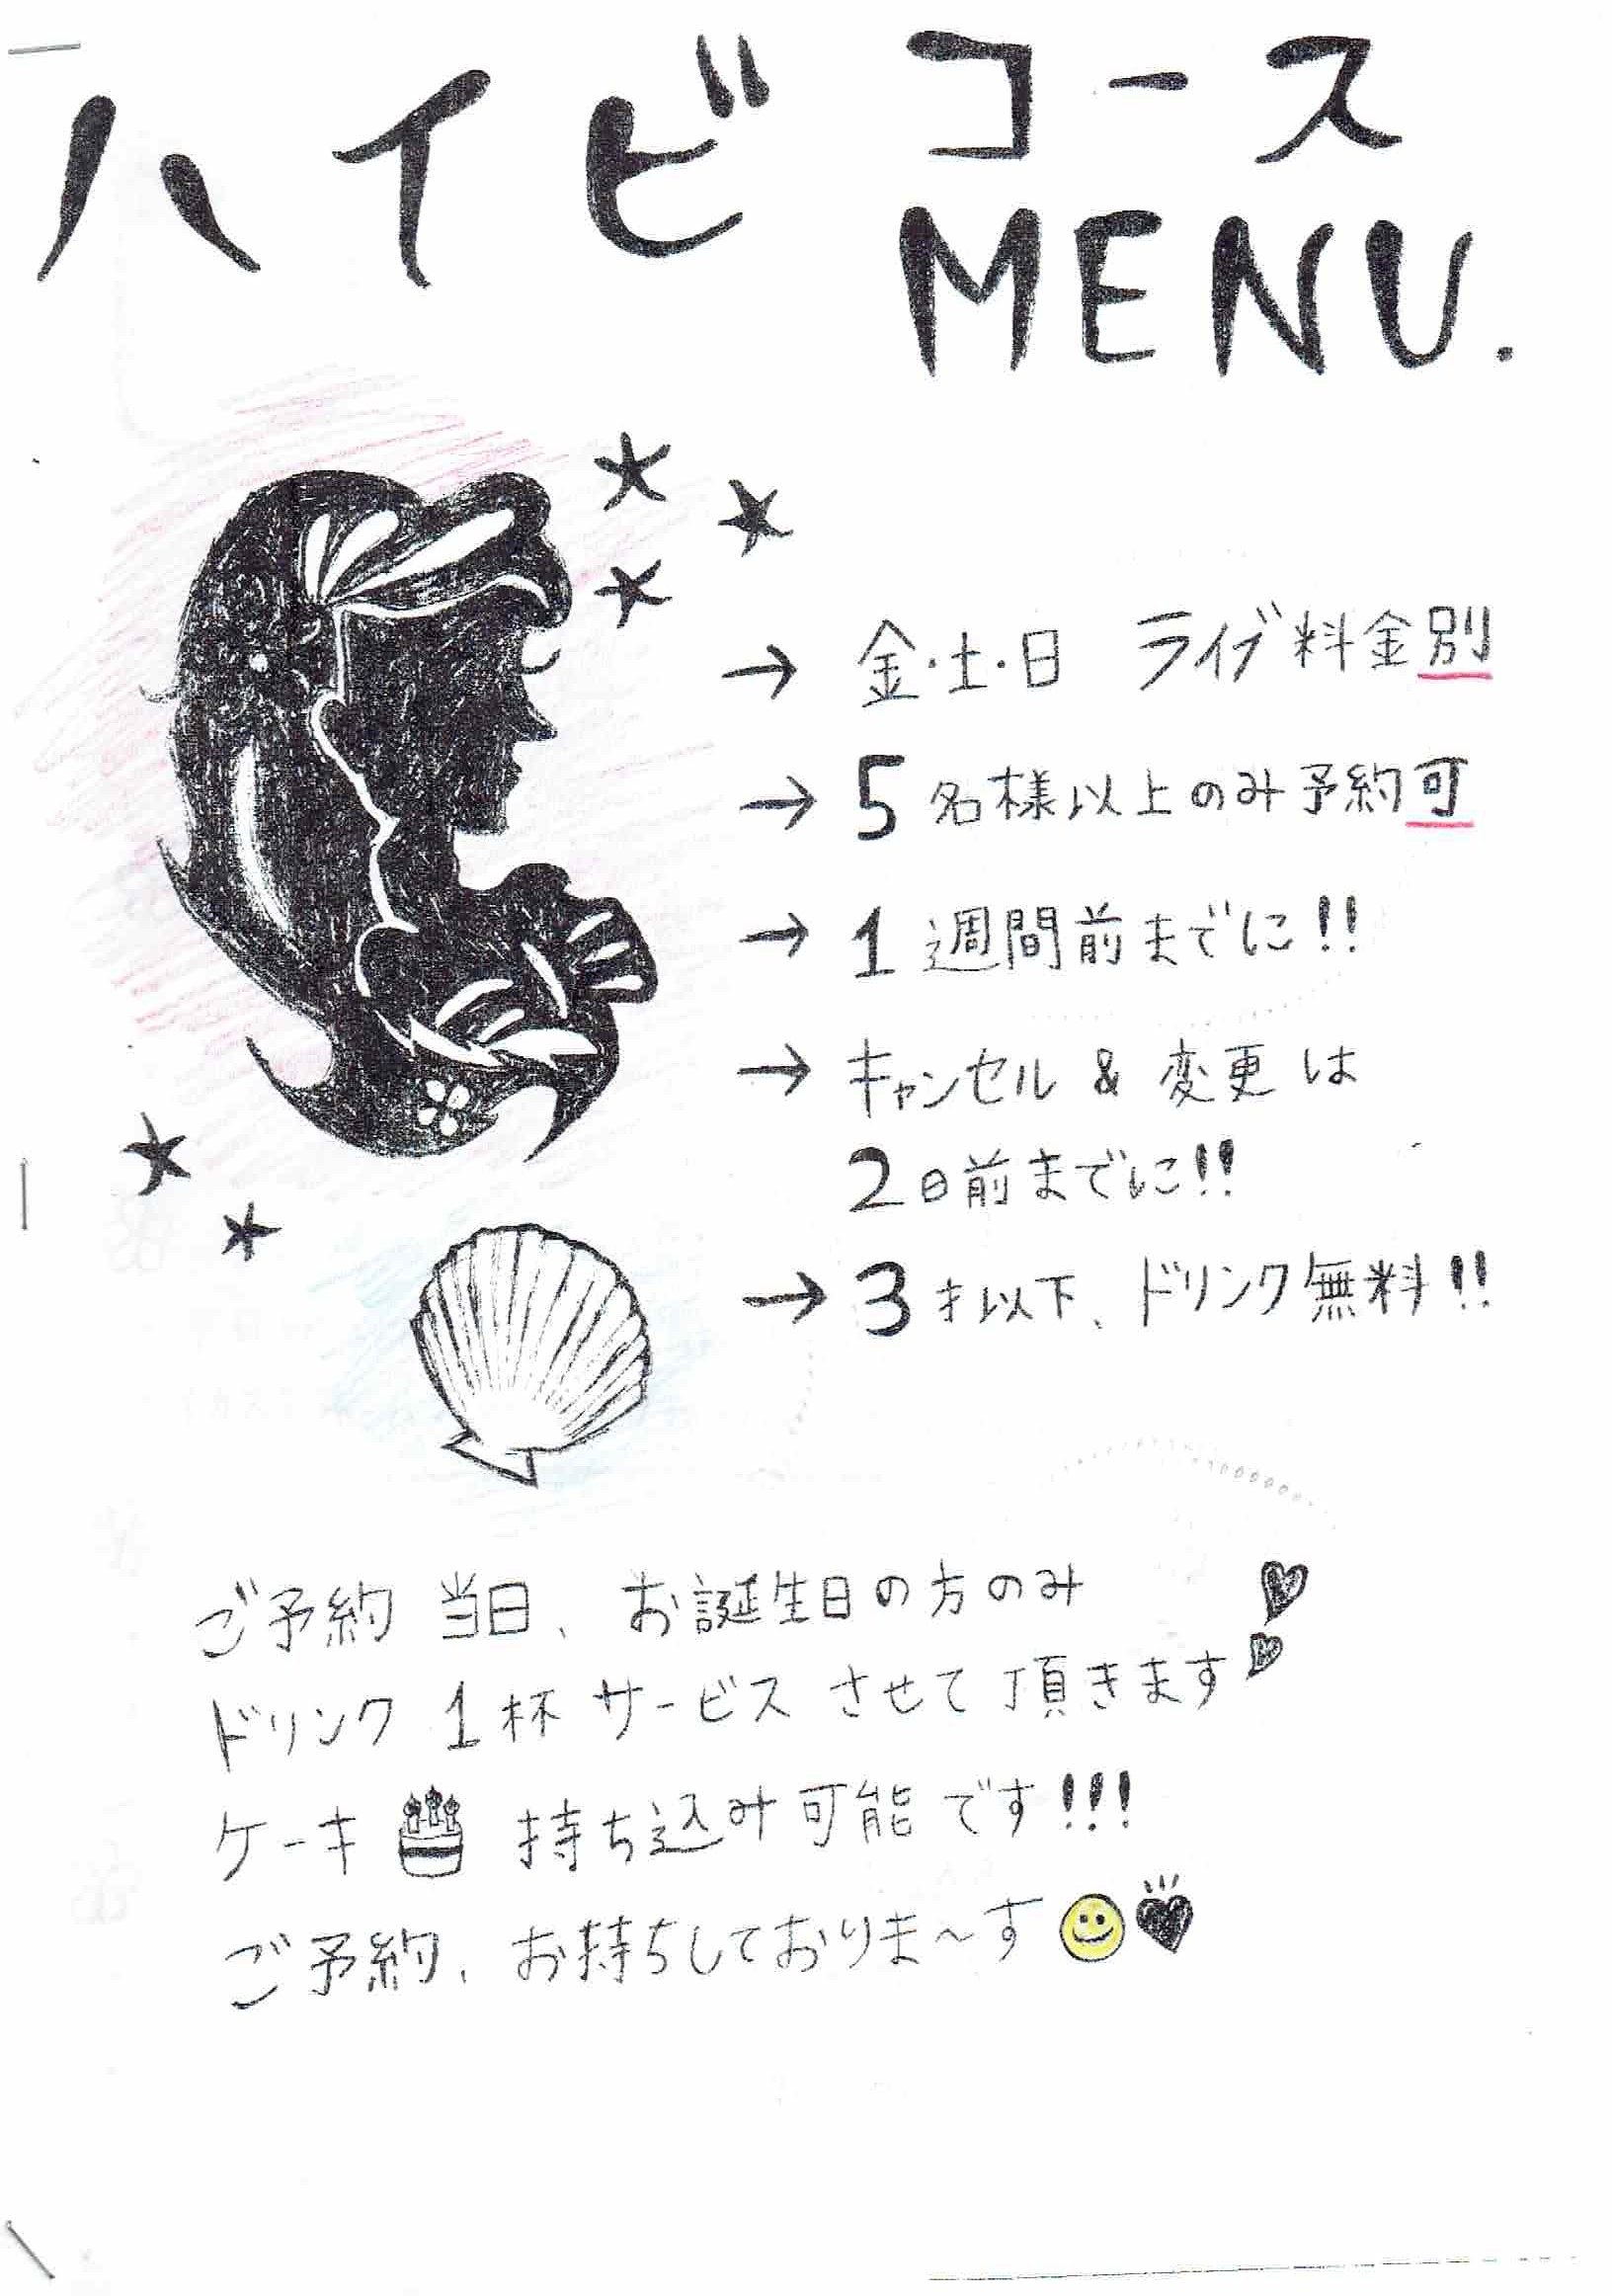 ハイビ コース
MENU.
→ 金・土・日 ライブ料金別
→ 5名様以上のみ予約可
→ 1週間前までに!!
→ キャンセル & 変更は
2日前までに!!
→ 3才以下、ドリンク無料!!
ご予約当日、お誕生日の方のみ
ドリンク1杯サービスさせて頂きます
ケーキ 持ち込み可能です!!!
ご予約、お持ちしておりま〜す